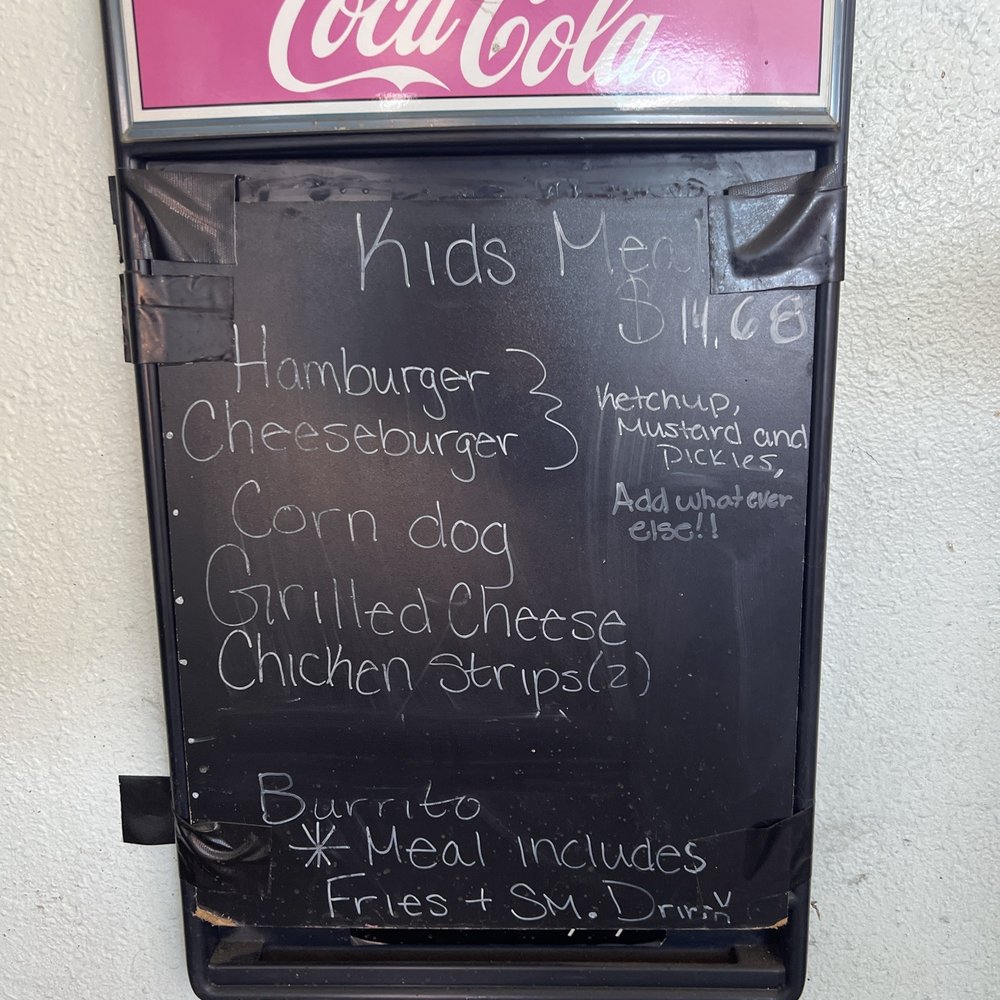 Coca-Cola®
Kids Meal
$14.68
Hamburger
Cheeseburger
Ketchup,
Mustard and
Pickles,
Add whatever
else!!
Corn dog
Grilled Cheese
Chicken Strips (2)
Burrito
* Meal includes
Fries + SM. Drink